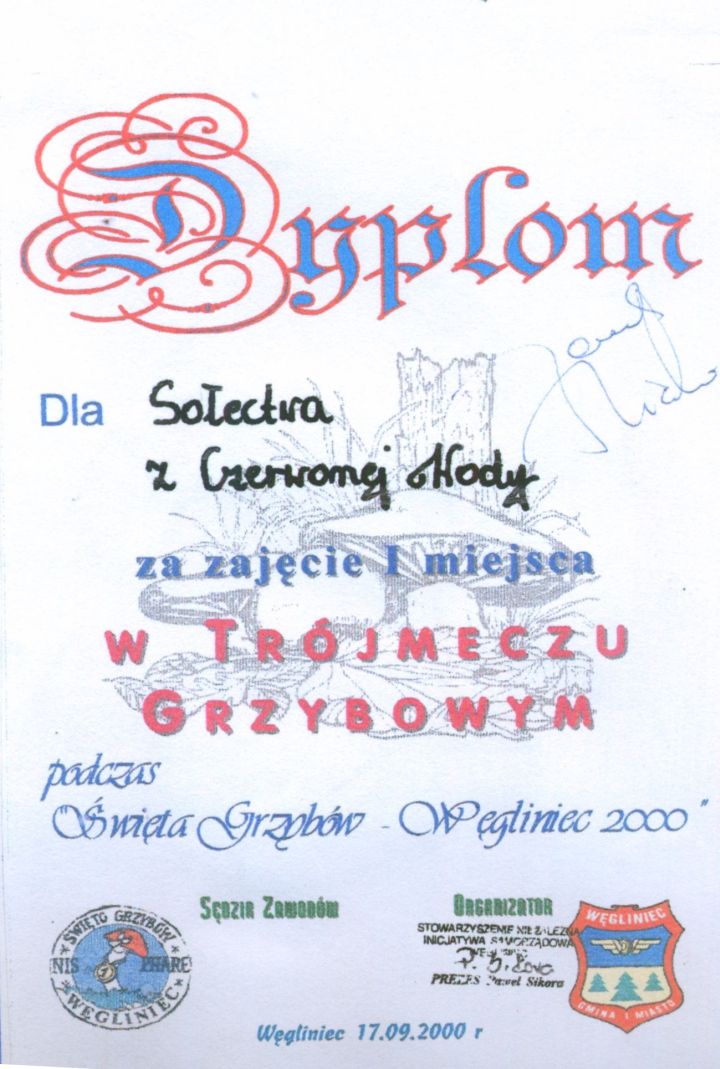 Dyplom
Dla Sołectwa
z Czerwonej Wody
za zajęcie I miejsca
W TRÓJMECZU
GRZYBOWYM
podczas
"Święta Grzybów - Węgliniec 2000"
Sędzia Zawodów
Organizator
STOWARZYSZENIE NIEZALEŻNA
INICJATYWA SAMORZĄDOWA
PREZES Paweł Sikora
ŚWIĘTO GRZYBÓW
NIS PHARE
WĘGLINIEC
WĘGLINIEC
GMINA I MIASTO
Węgliniec 17.09.2000 r